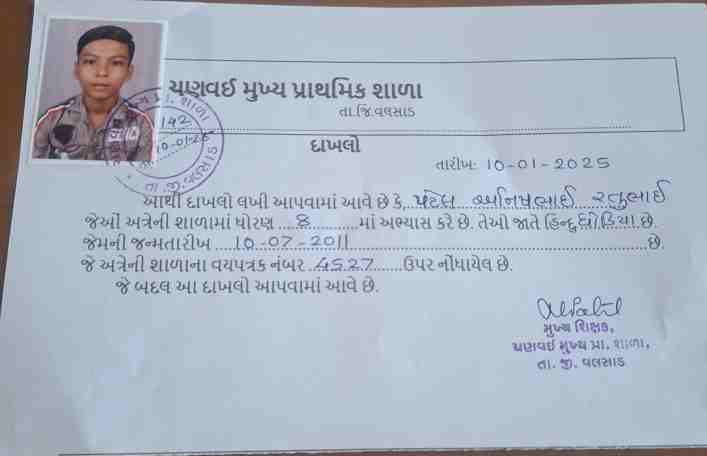 ચણવઈ મુખ્ય પ્રાથમિક શાળા
તા.જિ.વલસાડ
142
10-01-25
તા. જી. વલસાડ
દાખલો
તારીખ: 10-01-2025
આથી દાખલો લખી આપવામાં આવે છે કે, પટેલ અનિષભાઈ રતુભાઈ
જેઓ અત્રેની શાળામાં ધોરણ 8 માં અભ્યાસ કરે છે. તેઓ જાતે હિન્દુ ધોડિયા છે.
જેમની જન્મતારીખ 10-07-2011 છે.
જે અત્રેની શાળાના વયપત્રક નંબર 4527 ઉપર નોંધાયેલ છે.
જે બદલ આ દાખલો આપવામાં આવે છે.
મુખ્ય શિક્ષક,
ચણવઈ મુખ્ય પ્રા. શાળા,
તા. જી. વલસાડ